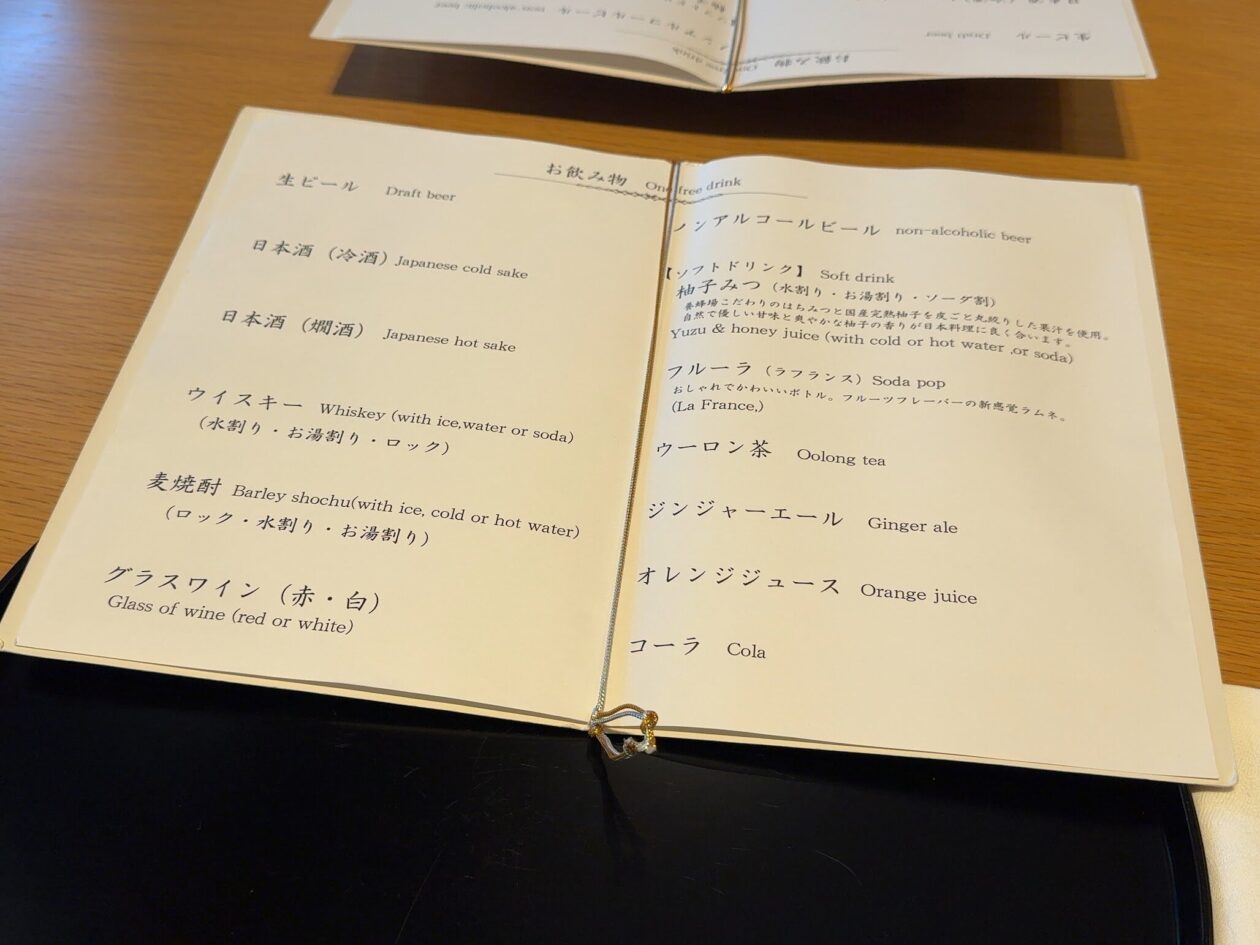 お飲み物 One free drink
生ビール Draft beer
日本酒(冷酒)Japanese cold sake
日本酒(燗酒) Japanese hot sake
ウイスキー Whiskey (with ice,water or soda)
(水割り・お湯割り・ロック)
麦焼酎 Barley shochu(with ice, cold or hot water)
(ロック・水割り・お湯割り)
グラスワイン(赤・白)
Glass of wine (red or white)
ノンアルコールビール non-alcoholic beer
【ソフトドリンク】 Soft drink
柚子みつ(水割り・お湯割り・ソーダ割)
養蜂場こだわりのはちみつと国産完熟柚子を皮ごと丸絞りした果汁を使用。
自然で優しい甘味と爽やかな柚子の香りが日本料理に良く合います。
Yuzu & honey juice (with cold or hot water ,or soda)
フルーラ(ラフランス)Soda pop
おしゃれでかわいいボトル。フルーツフレーバーの新感覚ラムネ。
(La France,)
ウーロン茶 Oolong tea
ジンジャーエール Ginger ale
オレンジジュース Orange juice
コーラ Cola
お飲み物 One free drink
ノンアルコールビール non-alcoholic beer
生ビール Draft beer